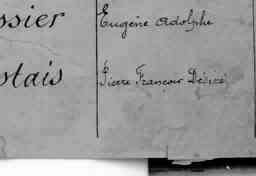 ssier Eugène Adolphe
stais Pierre François Désiré